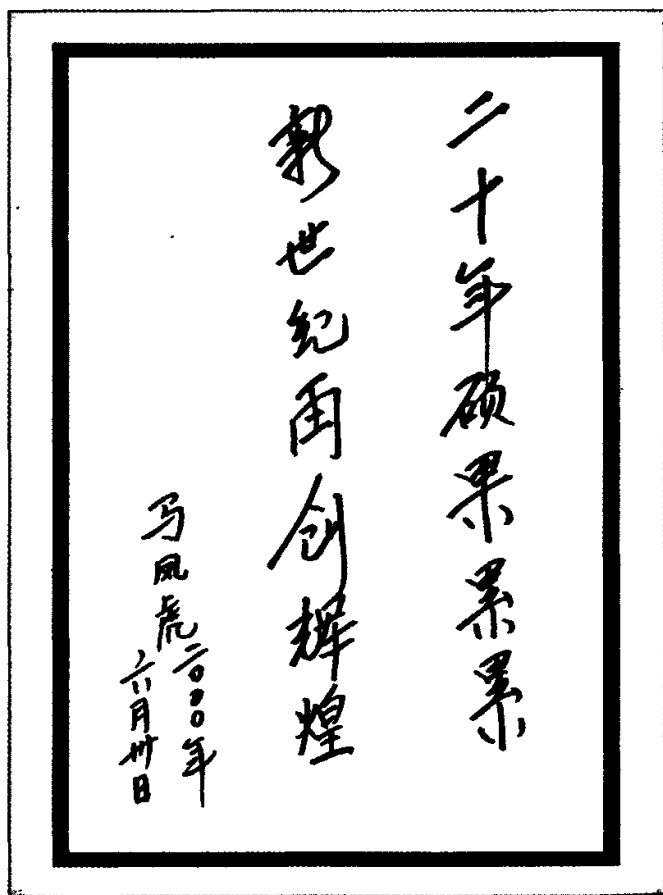 二十年硕果累累
新世纪再创辉煌
马凤虎
二〇〇〇年
六月卅日